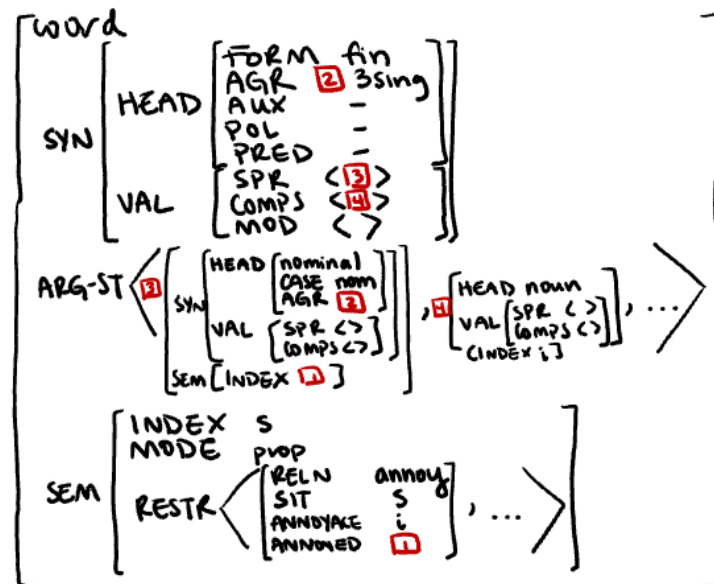 word
SYN
HEAD
FORM fin
AGR 2 3sing
AUX -
POL -
PRED -
VAL
SPR <3>
COMPS <4>
MOD < >
ARG-ST < 3
SYN
HEAD [nominal
CASE nom
AGR 2 ]
VAL [SPR < >
COMPS < >]
SEM [INDEX 1 ]
, 4
[HEAD noun
VAL [SPR < >
COMPS < >]
[INDEX i]
, ... >
SEM
INDEX s
MODE prop
RESTR <
RELN annoy
SIT s
ANNOYACE i
ANNOYED 1
, ... >